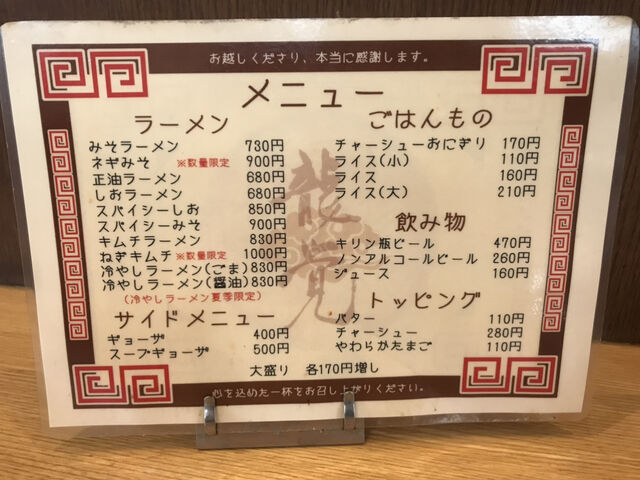 お越しくださり、本当に感謝します。
メニュー
ラーメン
みそラーメン 730円
ネギみそ ※数量限定 900円
正油ラーメン 680円
しおラーメン 680円
スパイシーしお 850円
スパイシーみそ 900円
キムチラーメン 830円
ねぎキムチ ※数量限定 1000円
冷やしラーメン(ごま) 830円
冷やしラーメン(醤油) 830円
(冷やしラーメン夏季限定)
サイドメニュー
ギョーザ 400円
スープギョーザ 500円
ごはんもの
チャーシューおにぎり 170円
ライス(小) 110円
ライス 160円
ライス(大) 210円
飲み物
キリン瓶ビール 470円
ノンアルコールビール 260円
ジュース 160円
トッピング
バター 110円
チャーシュー 280円
やわらかたまご 110円
大盛り 各170円増し
心を込めた一杯をお召し上がりください。
龍覚